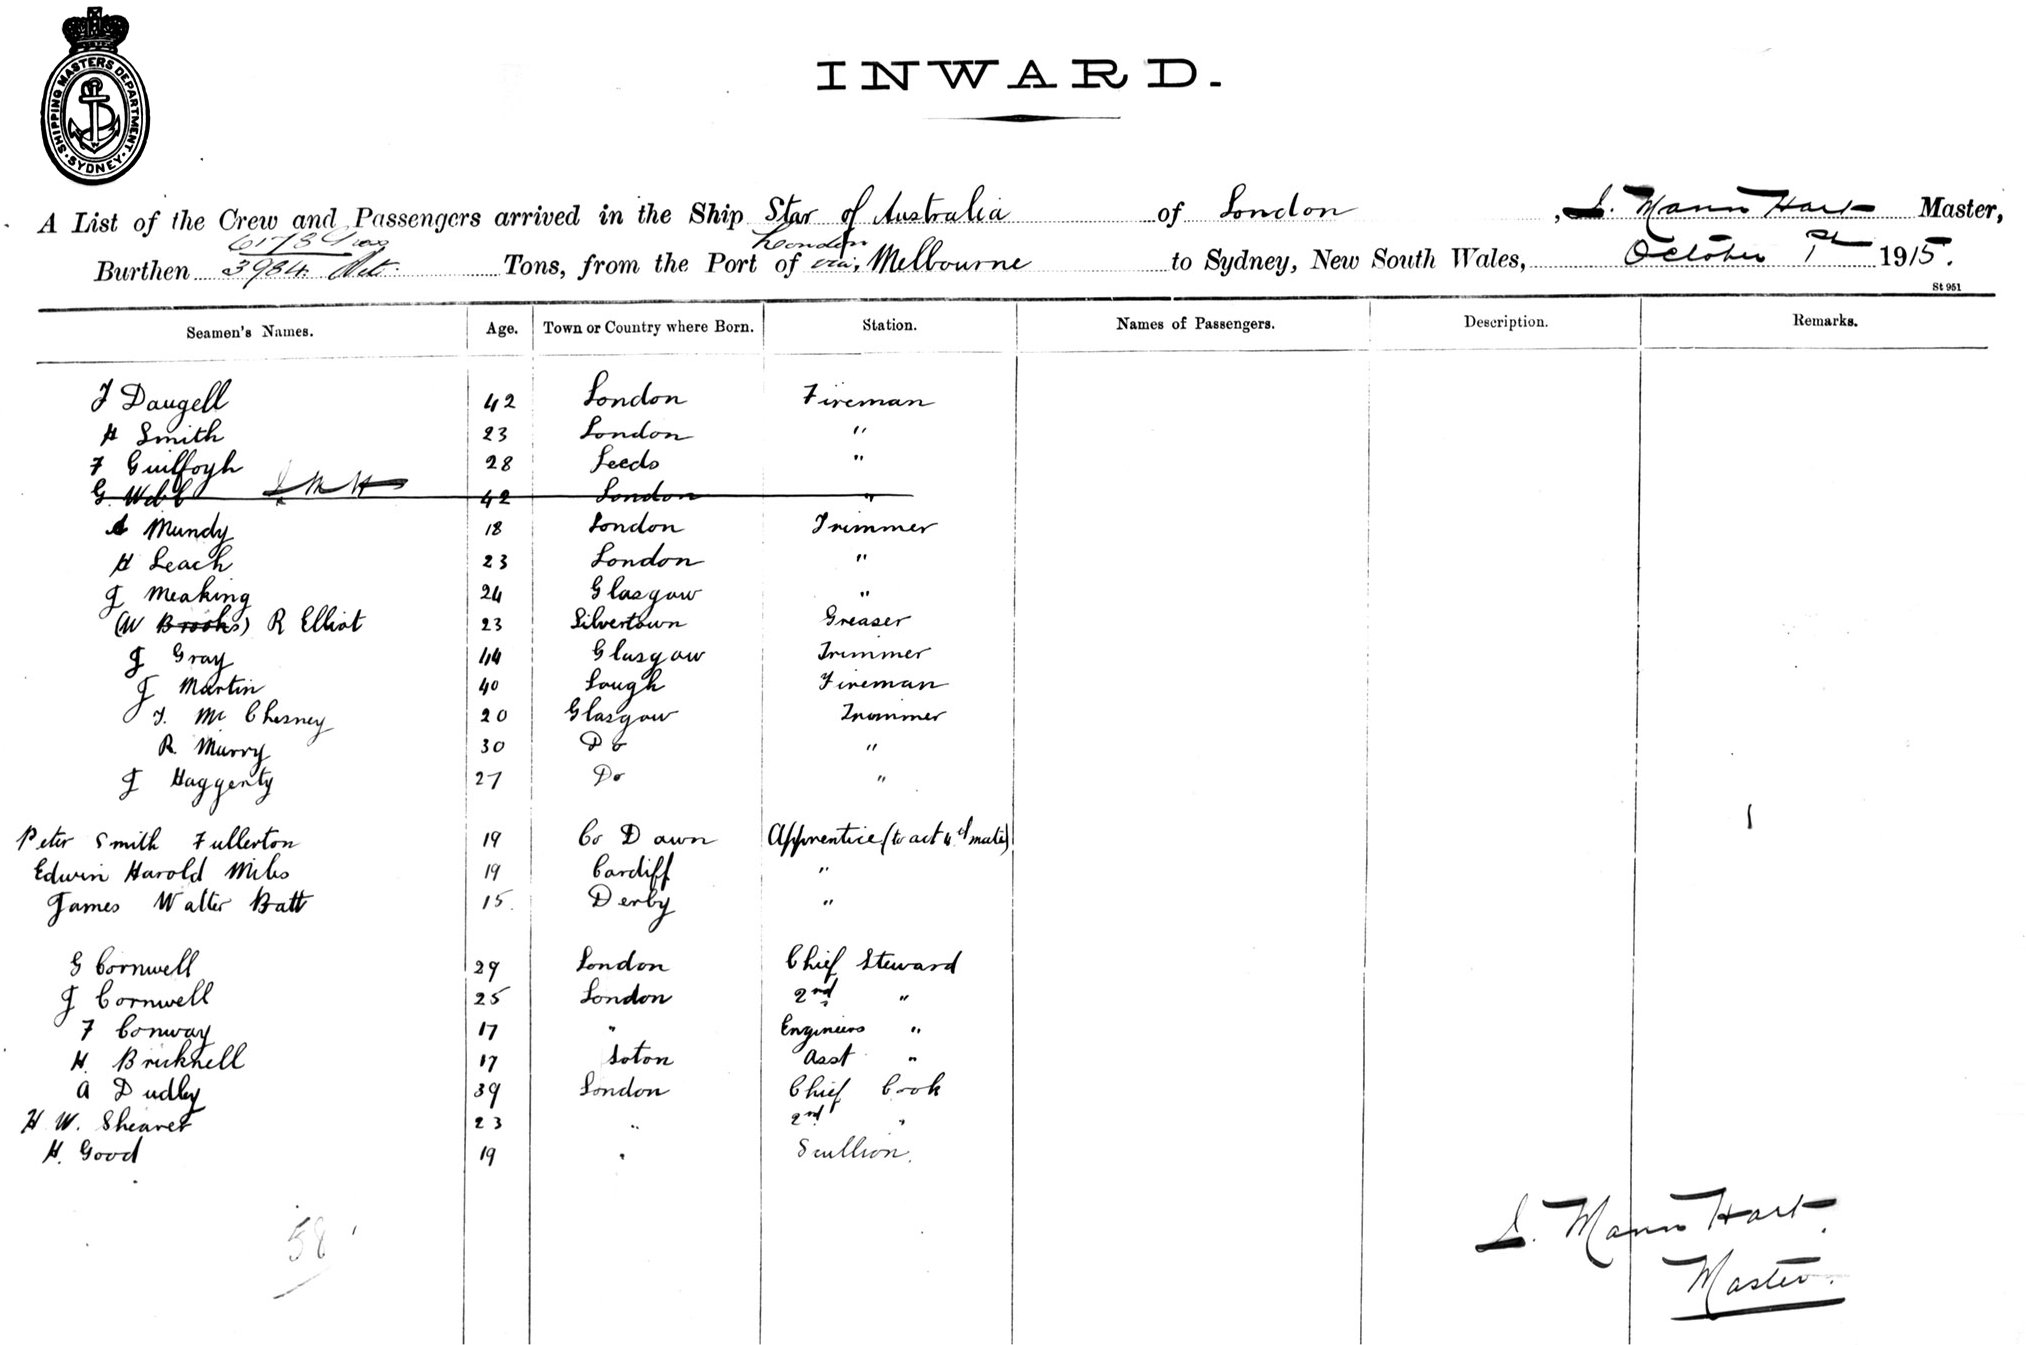 SHIPPING MASTERS DEPARTMENT. SYDNEY.
INWARD.
A List of the Crew and Passengers arrived in the Ship Star of Australia of London, S. Mann Hart Master,
6178 Gross London
Burthen 3984 Net. Tons, from the Port of via, Melbourne to Sydney, New South Wales, October 1st 1915.
St 951
Seamen's Names. Age. Town or Country where Born. Station. Names of Passengers. Description. Remarks.
F Daugell 42 London Fireman
H Smith 23 London "
F Guilfoyh 28 Leeds "
G. Webb 42 London "
Mundy 18 London Trimmer
H Leach 23 London "
J Meaking 24 Glasgow "
(W Brooks) R Elliot 23 Silvertown Greaser
J Gray 44 Glasgow Trimmer
J Martin 40 Lough Fireman
T. Mc Chesney 20 Glasgow Trimmer
R. Murry 30 Do "
J Haggerty 27 Do "
Peter Smith Fullerton 19 Co Down Apprentice (to act 4th mate)
Edwin Harold Miles 19 Cardiff "
James Walter Batt 15. Derby "
G Cornwell 29 London Chief Steward
J Cornwell 25 London 2nd "
F Conway 17 " Engineers "
H. Bricknell 17 Soton Asst "
A Dudley 39 London Chief Cook
H W. Shearer 23 " 2nd "
H. Good 19 " Scullion.
58
S. Mann Hart.
Master.